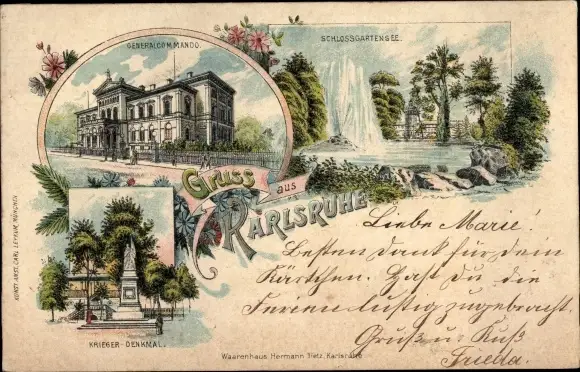 GENERALCOMMANDO.
SCHLOSSGARTENSEE.
Gruss
aus
KARLSRUHE
Liebe Marie!
Besten Dank für dein
Kärtchen. Hast du die
Ferien lustig zugebracht.
Gruß u. Kuß
Frieda.
KRIEGER-DENKMAL.
Waarenhaus Hermann Tietz, Karlsruhe
KUNST-ANST. CARL LEYKUM, MÜNCHEN